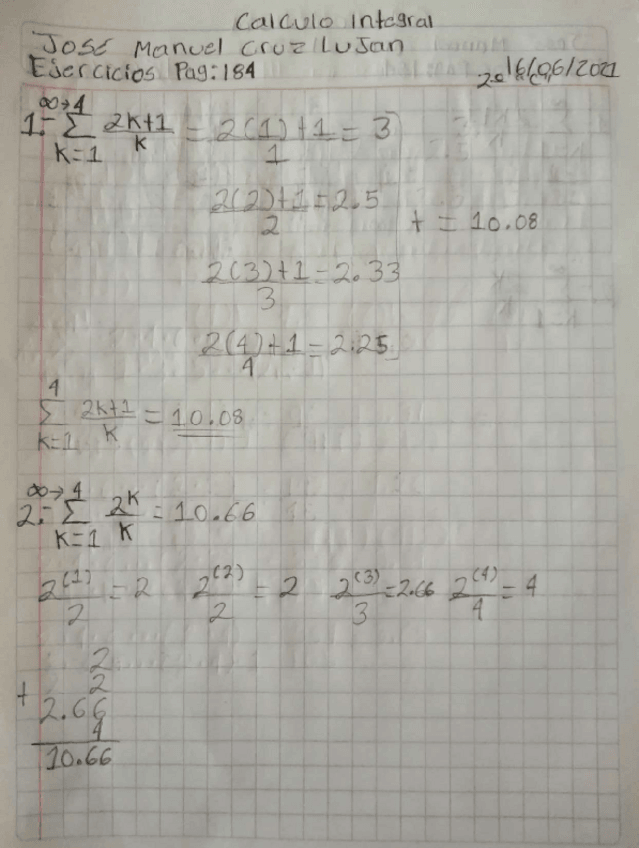 Calculo Integral
José Manuel Cruz Lujan
Ejercicios Pag: 184
16/06/2021
∞→4
1.- Σ 2k+1/k = 2(1)+1/1 = 3
k=1
2(2)+1/2 = 2.5
+ = 10.08
2(3)+1/3 = 2.33
2(4)+1/4 = 2.25
4
Σ 2k+1/k = 10.08
k=1
∞→4
2.- Σ 2^k/k = 10.66
k=1
2^(1)/2 = 2 2^(2)/2 = 2 2^(3)/3 = 2.66 2^(4)/4 = 4
2
2
+ 2.66
4
10.66